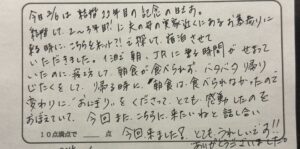 今日3/6は 結婚33年目の記念の日です。
結婚して、2〜3年目に夫の母の実家近くにあるお墓参りに
来る時に、こちらをネットで探して、宿泊させて
いただきました。1泊し朝、JRに乗る時間がせまって
いたのに寝坊して、朝食が食べられず、バタバタ帰り
じたくをして、帰る時に、朝食は、食べられなかったので
変わりに、おにぎりを、くださって、とても感動したのを
おぼえていて、今回また、こちらに来たいねと話し合い
今回来ました!とてもうれしいです!!
ありがとうございました。
10点満点で 点